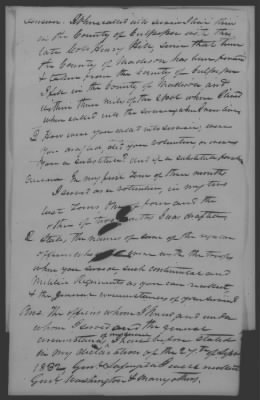 Answer. When called into service I lived then
in the County of Culpeper with the
late Col Henry Hill, since that time
the County of Madison has been formed
& taken from the County of Culpeper
I fell in the County of Madison and
within three miles of the place where I lived
when called into the service, where I now live
2 how were you called into service; were
you drafted, did you volunteer, or were
you a substitute and if a substitute for whom
Answer In my first Tour of three months
I served as a volunteer, in my two
last Tours one of four and the
other of two months I was drafted
2 State the names of some of the regular
officers who were with the troops
when you served such continental and
Militia Regiments as you can recollect
& the General circumstances of your service
Ans. The officers whom I knew and under
whom I served and the general
circumstances of my service I have before stated
in my declaration of the 27th of Sept
1832, Genl Lafayette I well recollect
Genl Washington & many others.